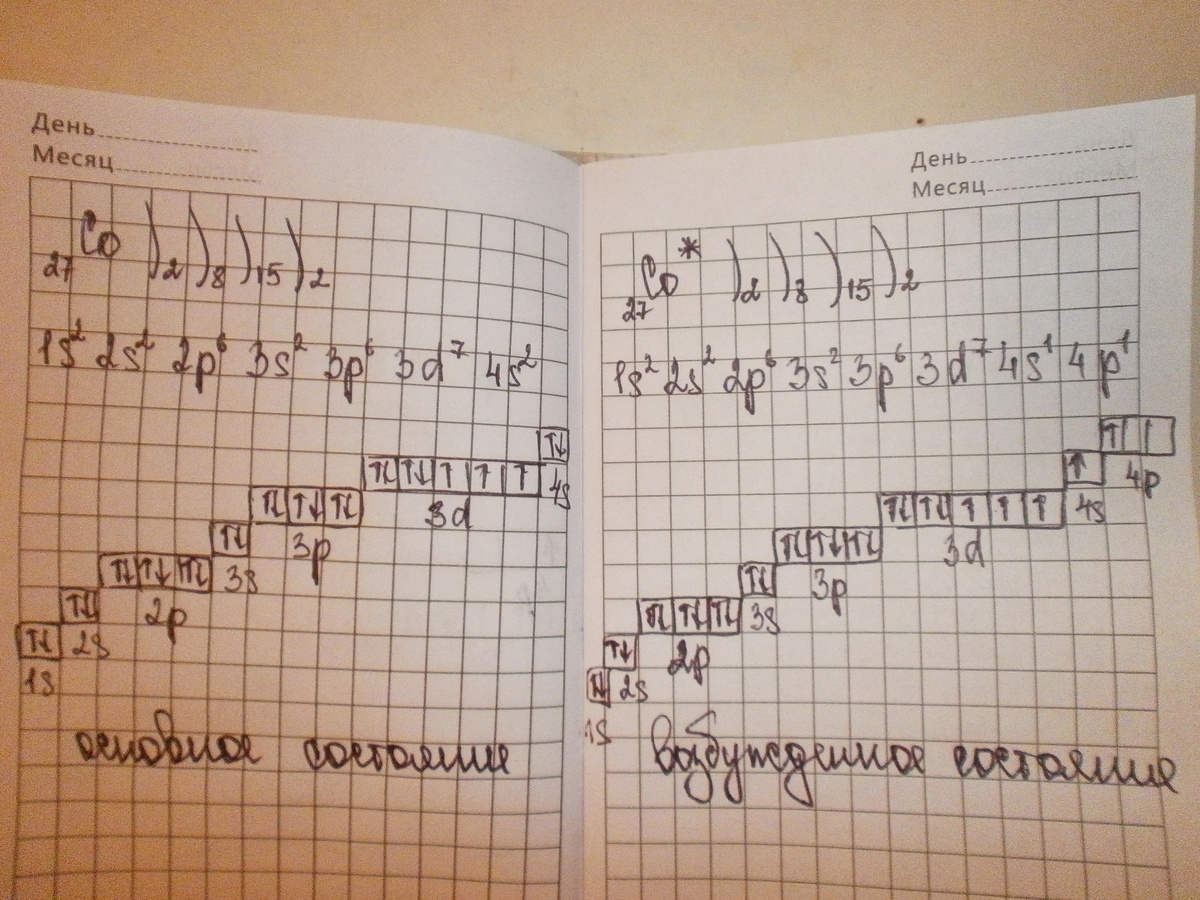 День
Месяц
27 Co )2 )8 )15 )2
1s² 2s² 2p⁶ 3s² 3p⁶ 3d⁷ 4s²
↑↓
↑↓ ↑↓ ↑ ↑ ↑ 4s
↑↓ ↑↓ ↑↓ 3d
↑↓ 3p
↑↓ ↑↓ ↑↓ 3s
↑↓ 2p
↑↓ 2s
1s
основное состояние
День
Месяц
27 Co* )2 )8 )15 )2
1s² 2s² 2p⁶ 3s² 3p⁶ 3d⁷ 4s¹ 4p¹
↑
↑ 4p
↑↓ ↑↓ ↑ ↑ ↑ 4s
↑↓ ↑↓ ↑↓ 3d
↑↓ 3p
↑↓ ↑↓ ↑↓ 3s
↑↓ 2p
↑↓ 2s
1s
возбужденное состояние